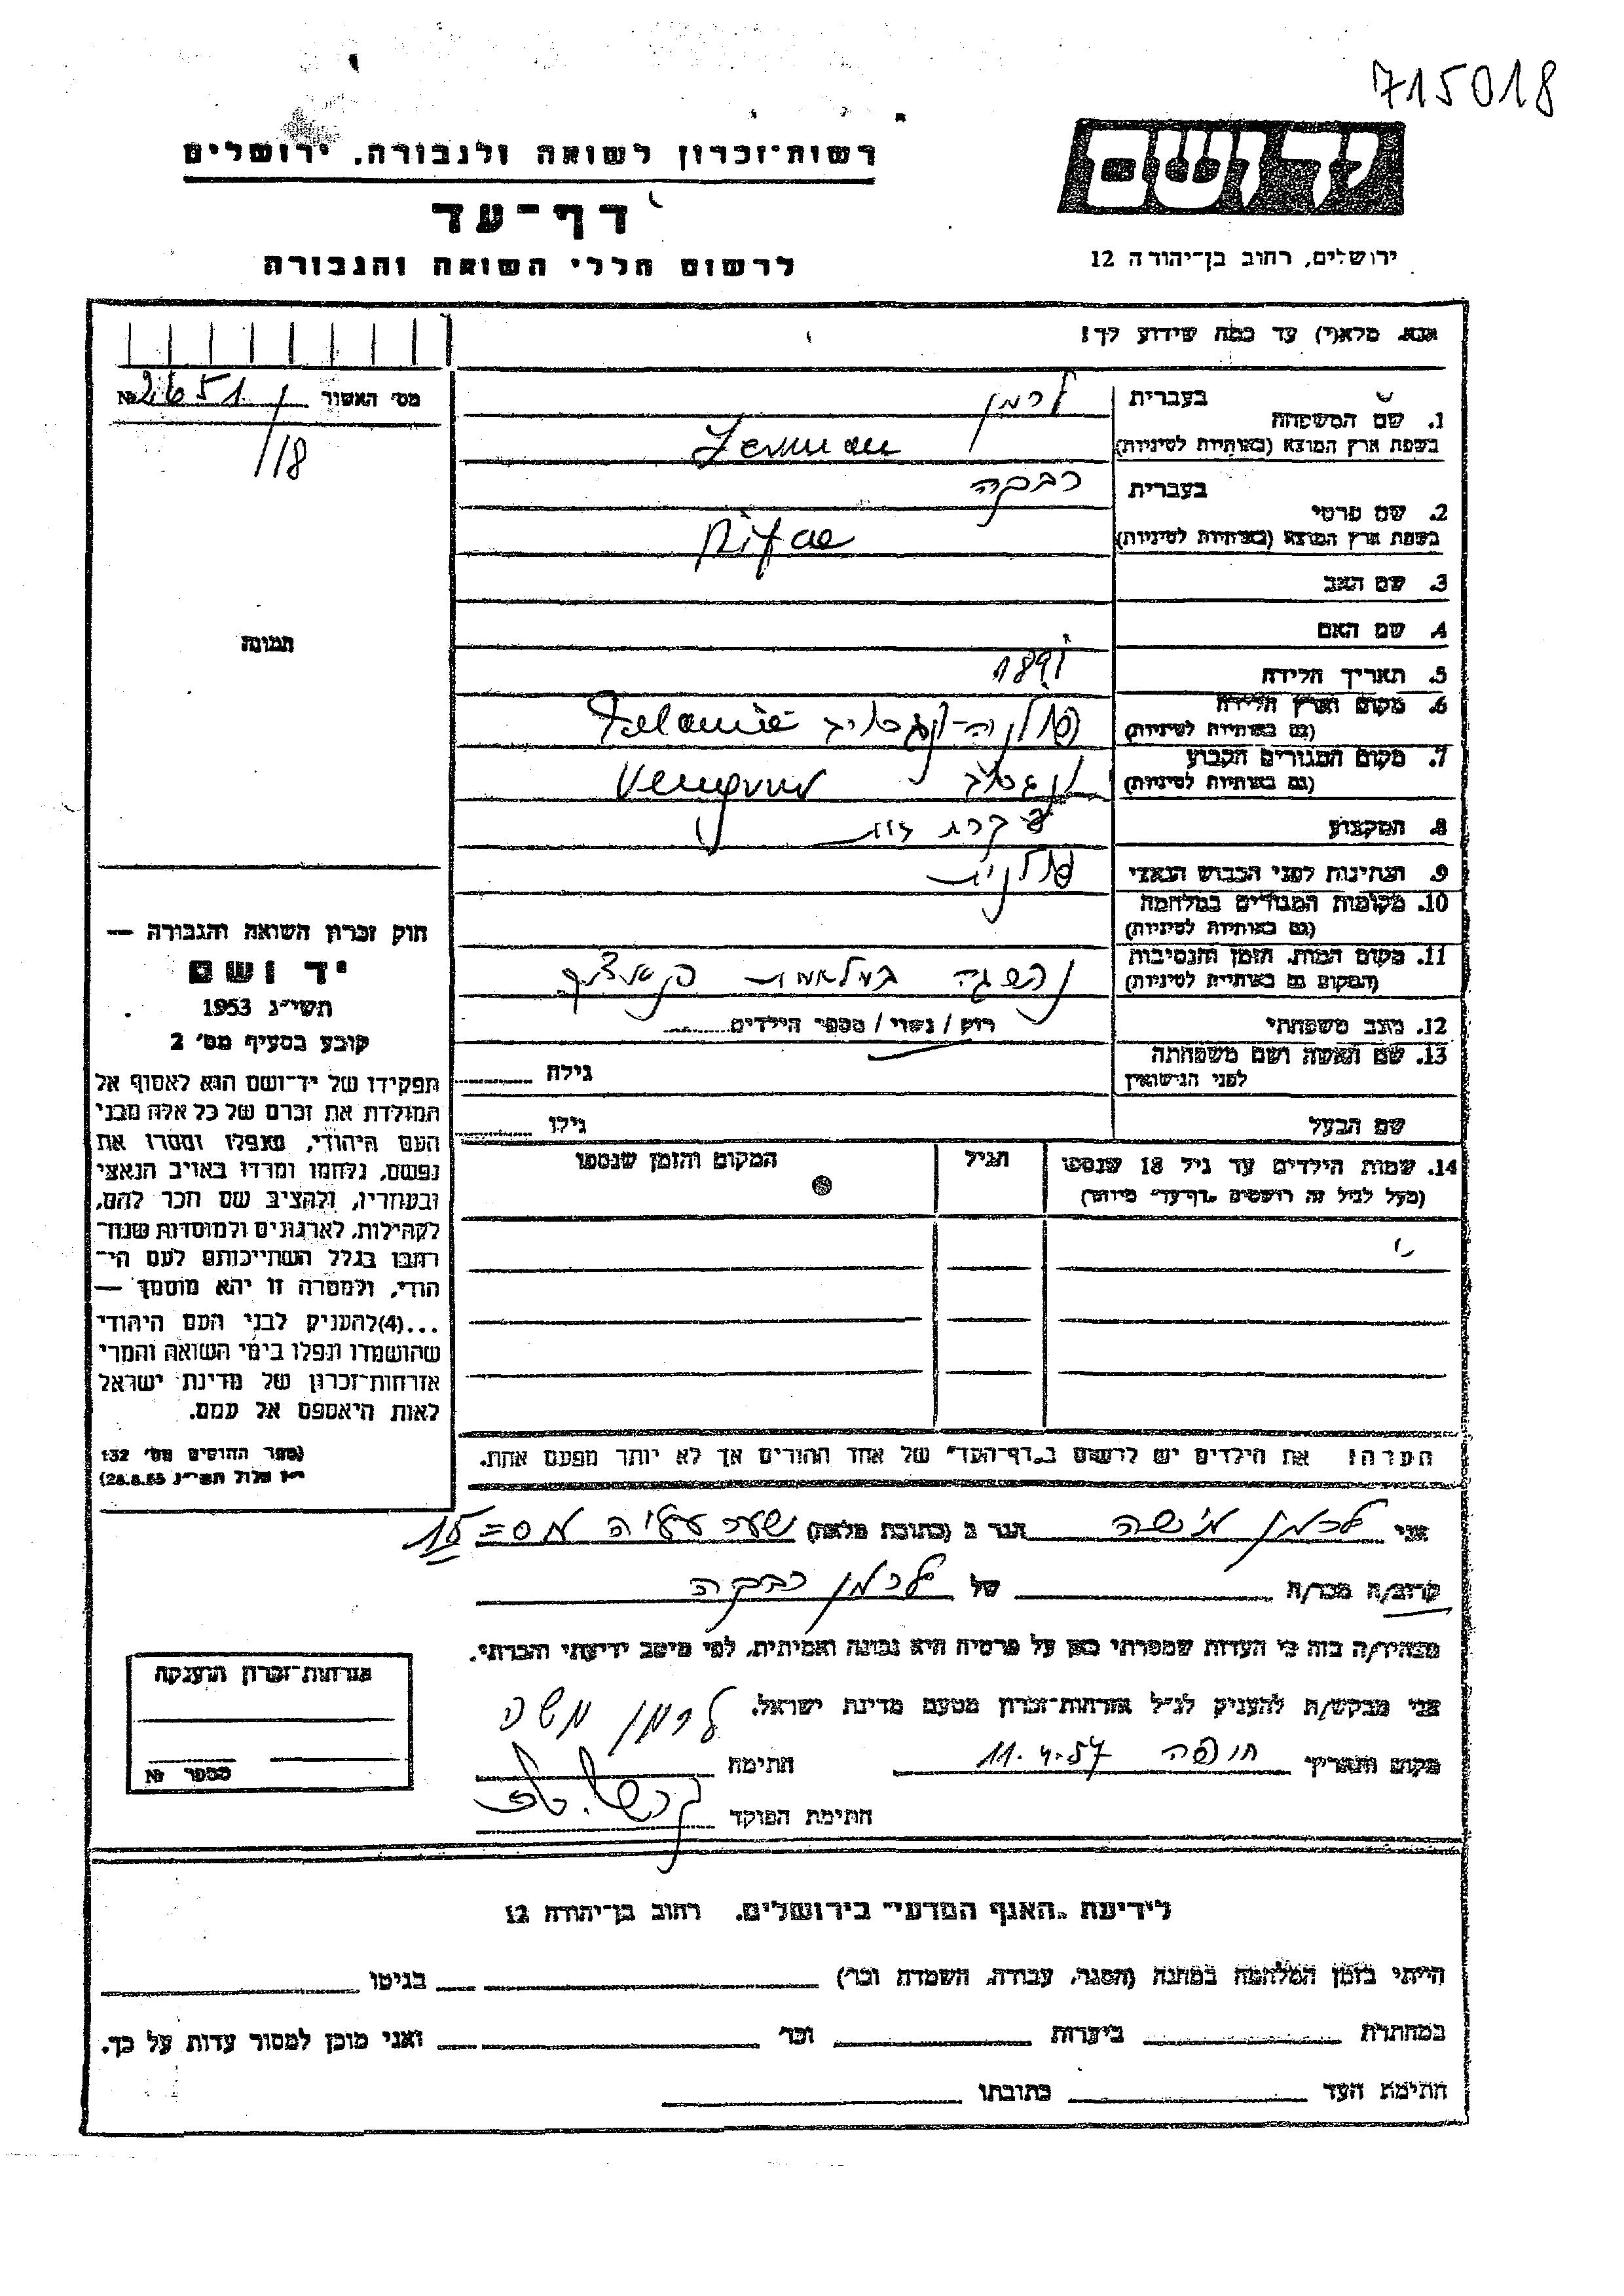 715018
יד ושם
ירושלים, רחוב בן־יהודה 12
רשות־זכרון לשואה ולגבורה. ירושלים
דף־עד
לרשום חללי השואה והגבורה
אנא, מלא(י) עד כמה שידוע לך!
מס׳ האשור №2651
/18
תמונה
1. שם המשפחה
בעברית לרמן
בשפת ארץ המוצא (באותיות לטיניות) Lerman
2. שם פרטי
בעברית רבקה
בשפת ארץ המוצא (באותיות לטיניות)
3. שם האב
4. שם האם
5. תאריך הלידה 1891
6. מקום וארץ הלידה
(גם באותיות לטיניות)
7. מקום המגורים הקבוע
(גם באותיות לטיניות)
8. המקצוע עקרת בית
9. הנתינות לפני הכבוש הנאצי פולנית
10. מקומות המגורים במלחמה
(גם באותיות לטיניות)
11. מקום המות, הזמן והנסיבות
(המקום גם באותיות לטיניות) נהרגה
12. מצב משפחתי רווק / נשוי / מספר הילדים
13. שם האשה ושם משפחתה
לפני הנישואין גילה
שם הבעל גילו
14. שמות הילדים עד גיל 18 שנספו הגיל המקום והזמן שנספו
(מעל לגיל זה רושמים „דף־עד״ מיוחד)
הערה: את הילדים יש לרשום ב„דף־העד״ של אחד ההורים אך לא יותר מפעם אחת.
חוק זכרון השואה והגבורה —
יד ושם
תשי״ג 1953
קובע בסעיף מס׳ 2
תפקידו של יד־ושם הוא לאסוף אל
המולדת את זכרם של כל אלה מבני
העם היהודי, שנפלו ומסרו את
נפשם, נלחמו ומרדו באויב הנאצי
ובעוזריו, ולהציב שם וזכר להם,
לקהילות, לארגונים ולמוסדות שנח־
רבו בגלל השתייכותם לעם הי־
הודי, ולמטרה זו יהא מוסמך —
...(4)להעניק לבני העם היהודי
שהושמדו ונפלו בימי השואה והמרי
אזרחות־זכרון של מדינת ישראל
לאות היאספם אל עמם.
(ספר החוקים מס׳ 132
י״ז אלול תשי״ג 28.8.53)
אני לרמן משה הגר ב (כתובת מלאה) שער עליה מס= 15
קרוב/ה מכר/ה של לרמן רבקה
מצהיר/ה בזה כי העדות שמסרתי כאן על פרטיה היא נכונה ואמיתית, לפי מיטב ידיעתי והכרתי.
אני מבקש/ת להעניק לנ״ל אזרחות־זכרון מטעם מדינת ישראל.
מקום ותאריך חיפה 11.4.57 חתימה לרמן משה
חתימת הפוקד
אזרחות־זכרון הוענקה
מספר №
לידיעת „האגף המדעי״ בירושלים. רחוב בן־יהודה 12
הייתי בזמן המלחמה במחנה (הסגר, עבודה, השמדה וכו׳) בגיטו
במחתרת ביערות וכו׳ ואני מוכן למסור עדות על כך.
חתימת העד כתובתו